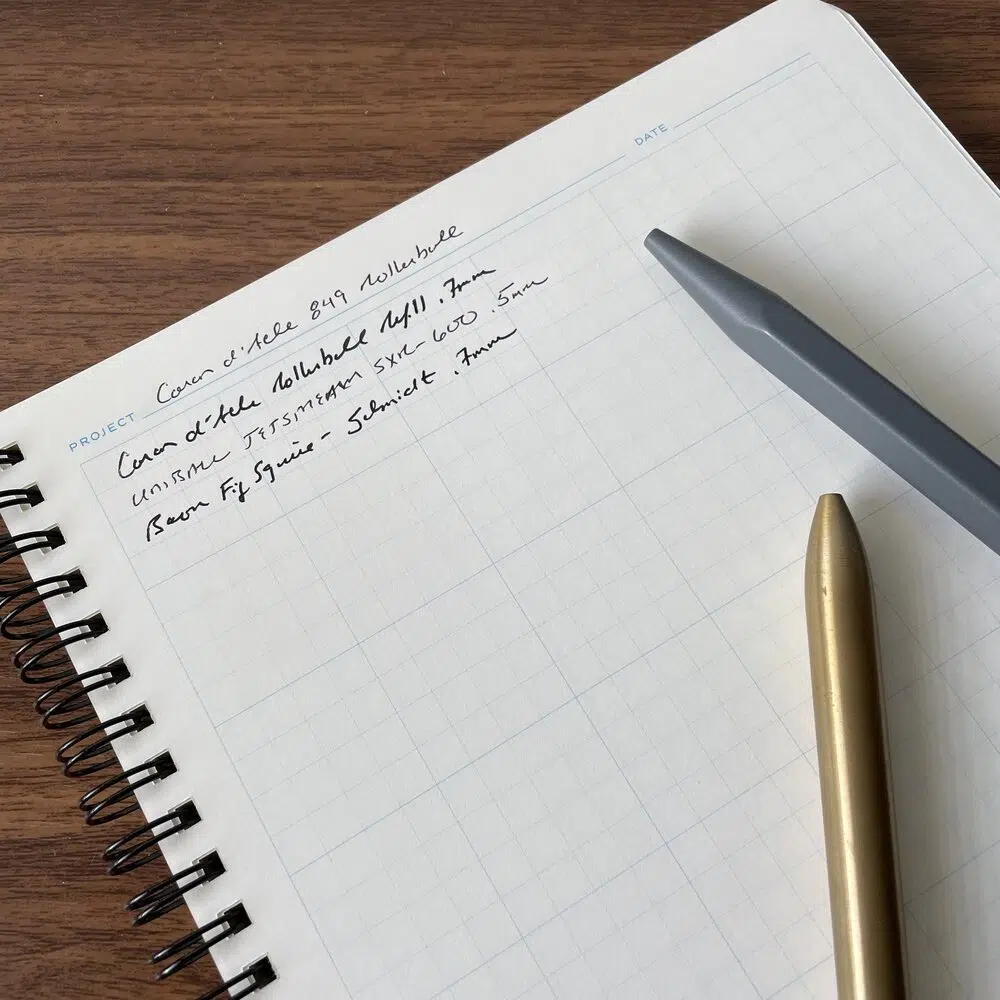 DATE
PROJECT Caran d'Ache 849 rollerball
Caran d'Ache rollerball refill .7mm
UNIBALL JETSTREAM SXR-600 .5mm
Baron Fig Squire - Schmidt .7mm